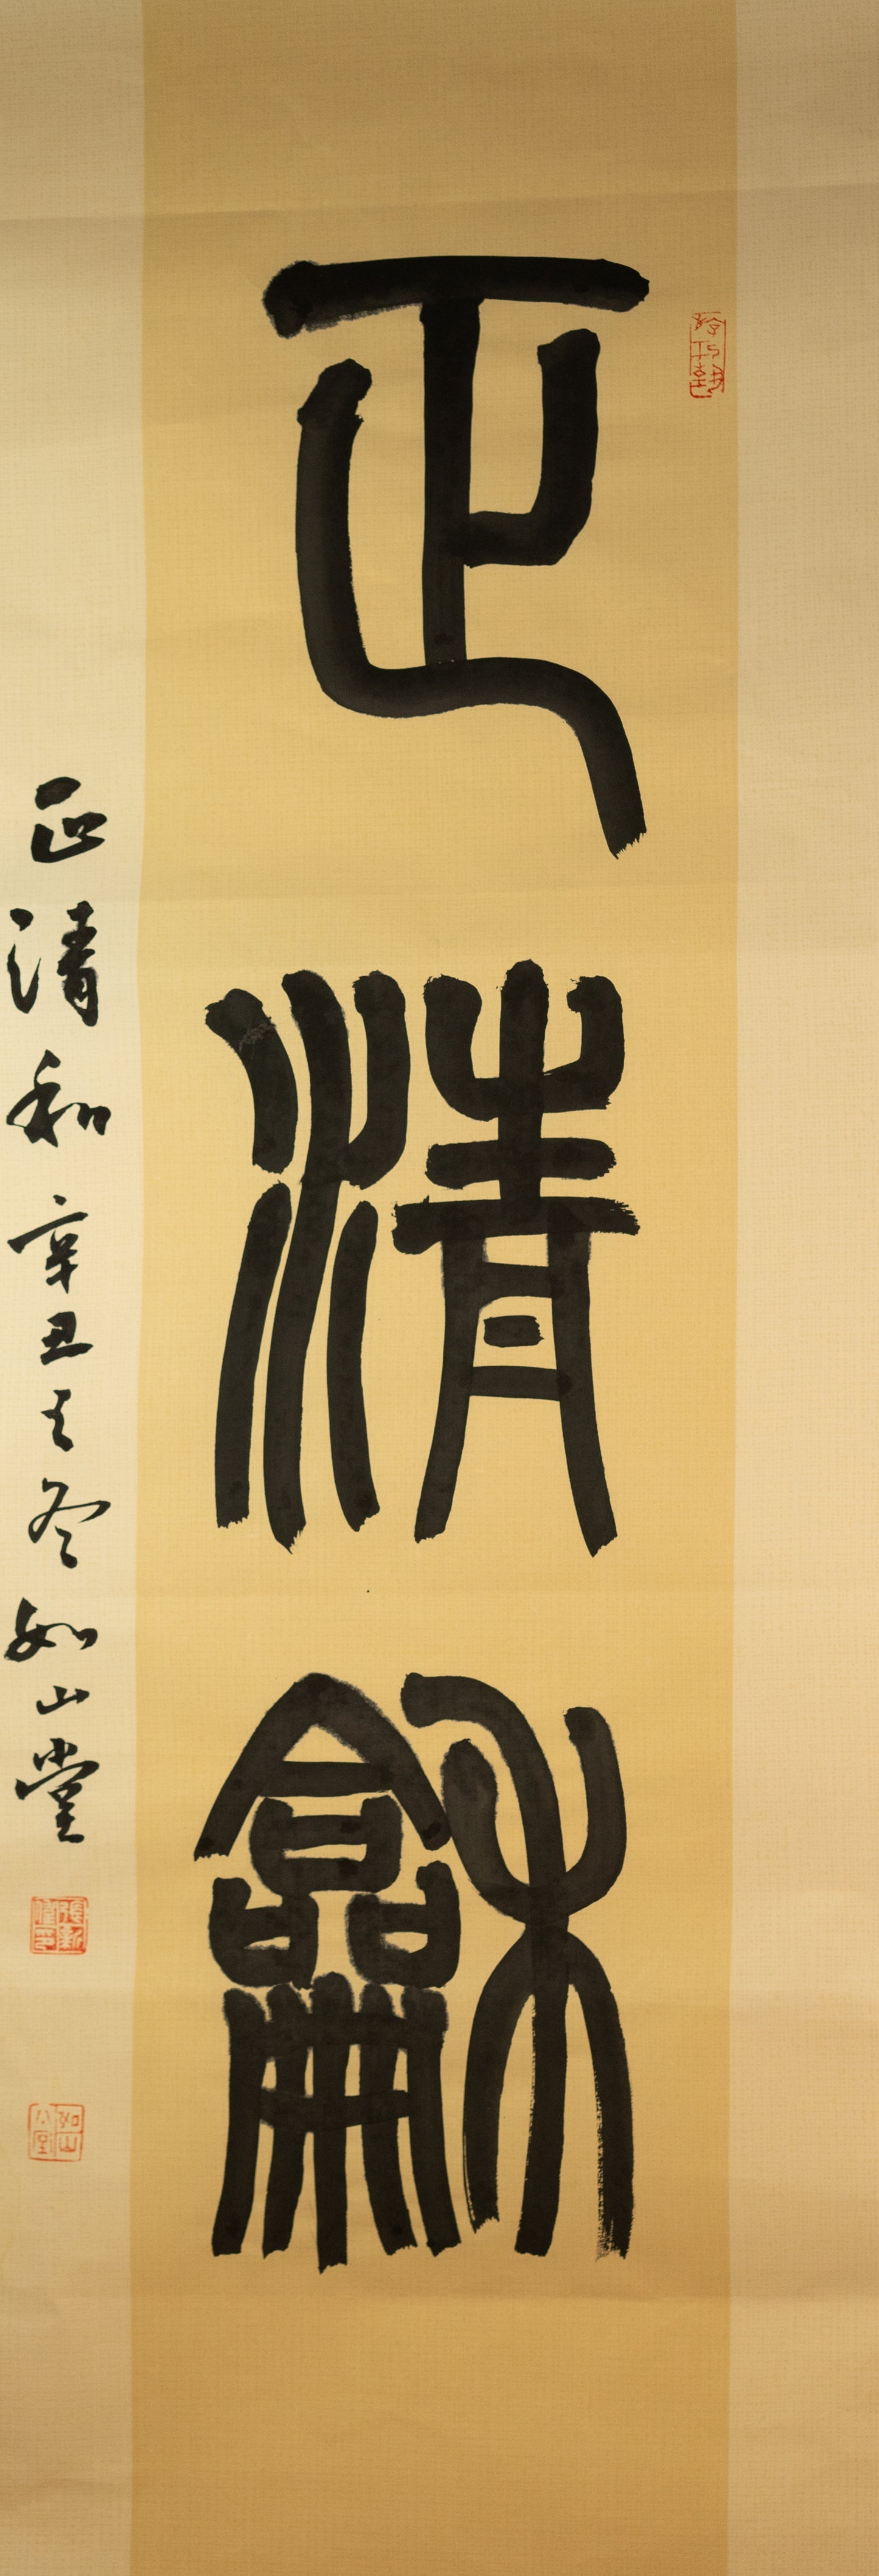 正清龢
正清和 辛丑之冬 如山堂
張新
如山
堂